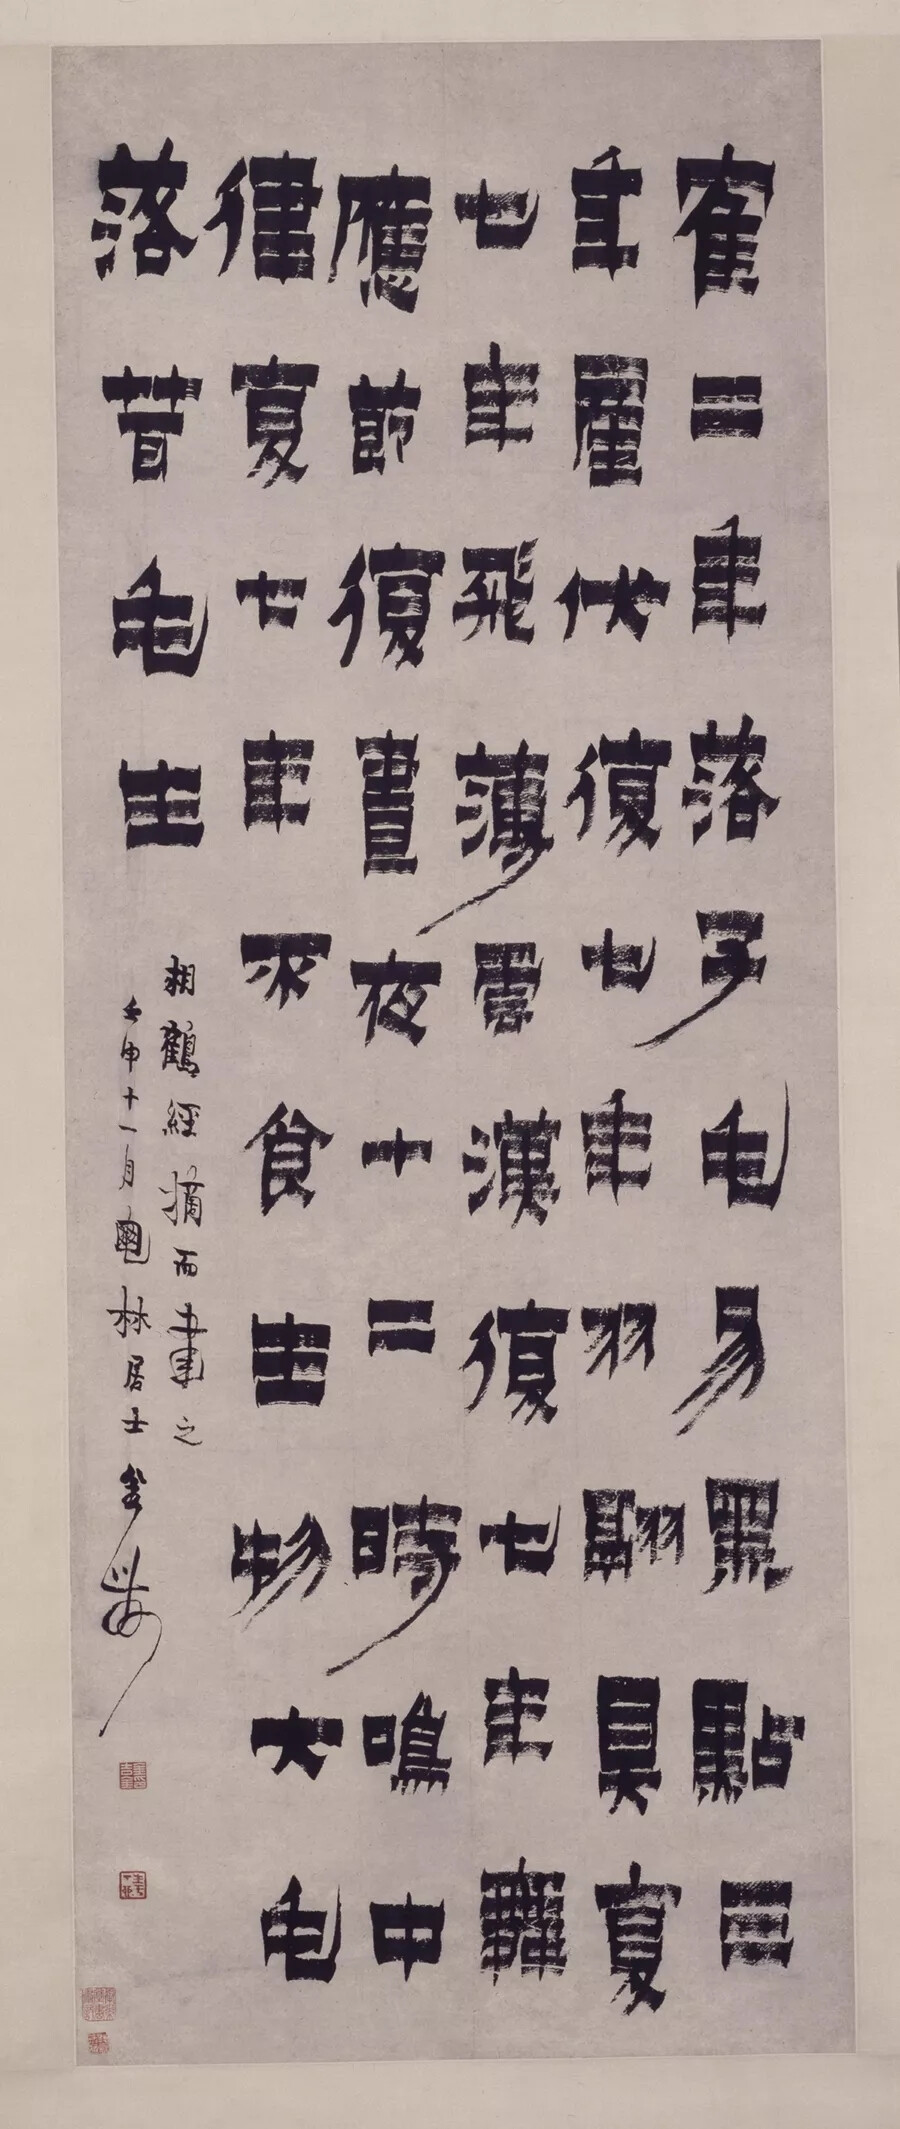 寉二年落子毛易黑點三
年產伏復七年羽翮具复
七年飛薄雲漢復七年舞
應節復晝夜十二時鳴中
律复七年不食生物大毛
落茸毛生
相鶴經摘而書之
壬申十一月林居士金農